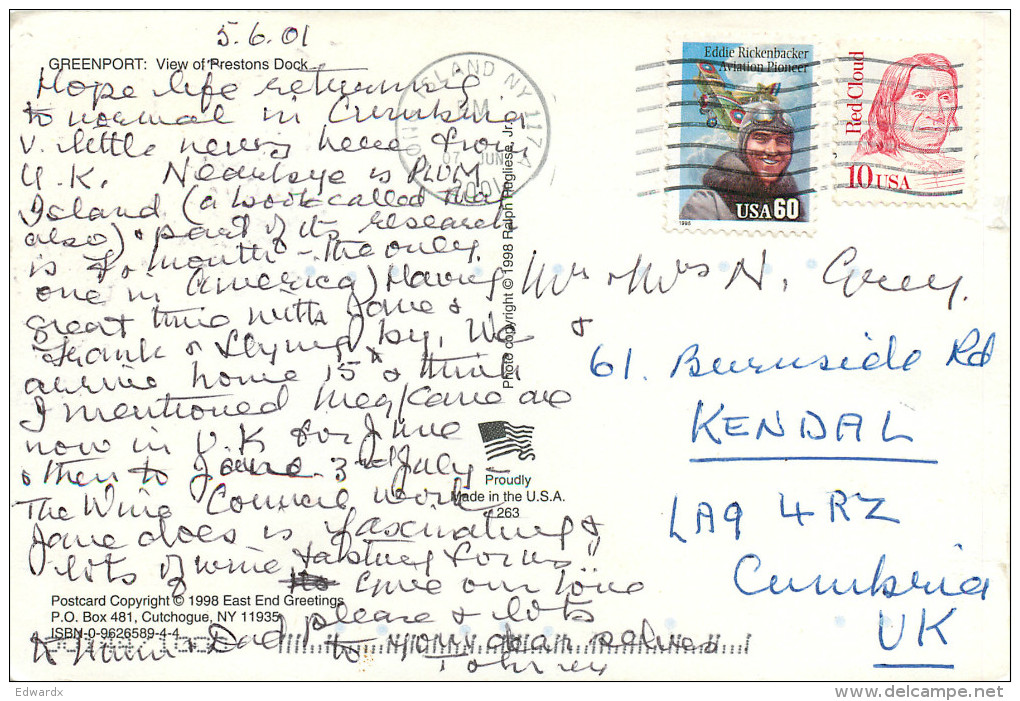 5.6.01
GREENPORT: View of Prestons Dock
Hope life returning
to normal in Cumbria
v. little news here from
U.K. Nearbye is PLUM
Island (a book called that
also) & part of its research
is f. mouth - the only
one in America) Having
great time with Jane &
Frank & flying by, We
arrive home 15th & think
I mentioned Meg/Came are
now in U.K for June
& then to Jane 3rd July -
The Wine Council work
Jane does is fascinating &
lots of wine tasting for us!!
Give our love
please & lots
to your dear selves
& Johnny
Mum & Dad
Photo copyright © 1998 Ralph Pugliese, Jr.
Proudly
Made in the U.S.A.
263
Postcard Copyright © 1998 East End Greetings
P.O. Box 481, Cutchogue, NY 11935
ISBN-0-9626589-4-4
ISLAND NY 117
PM
07 JUN
2001
Eddie Rickenbacker
Aviation Pioneer
USA 60
1995
Red Cloud
10 USA
Mr & Mrs N. Grey.
61. Burnside Rd
KENDAL
LA9 4RZ
Cumbria
UK
Edwardx
www.delcampe.net